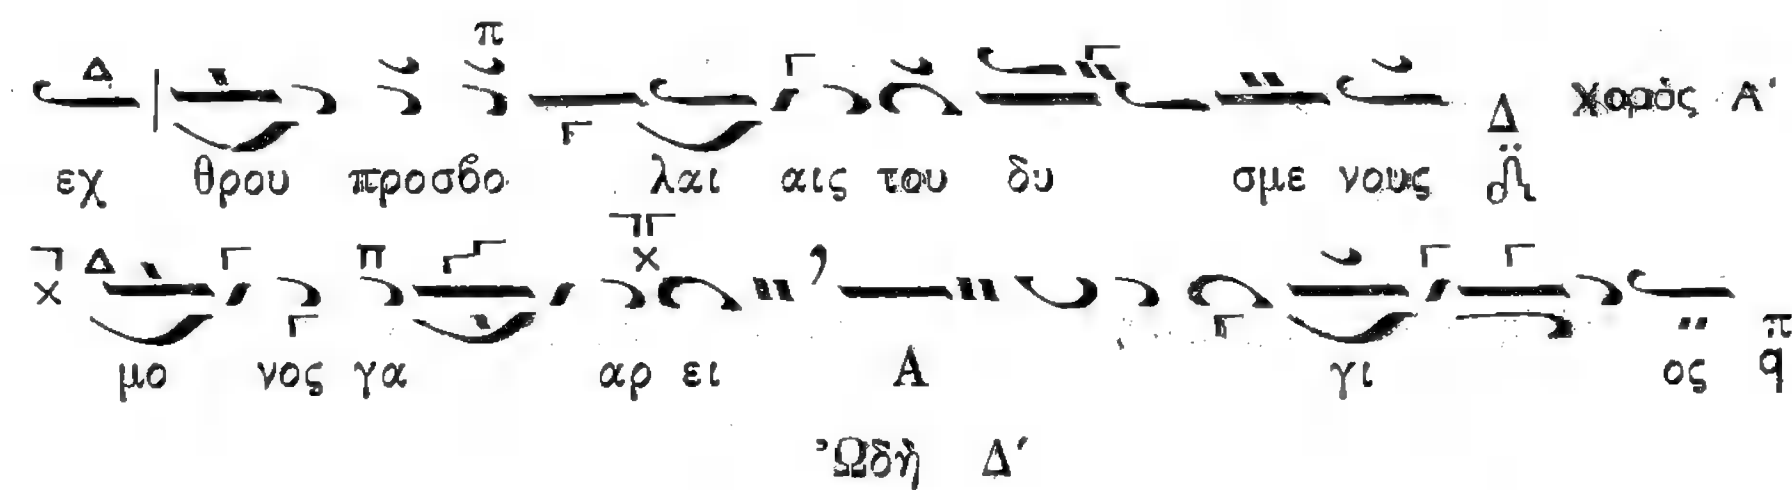 Δ π
εχ θρου προσβο λαι αις του δυ σμε νους Δ χορός Α΄
Δ π
μο νος γα αρ ει Α γι ος π q
Ὠδὴ Δ΄